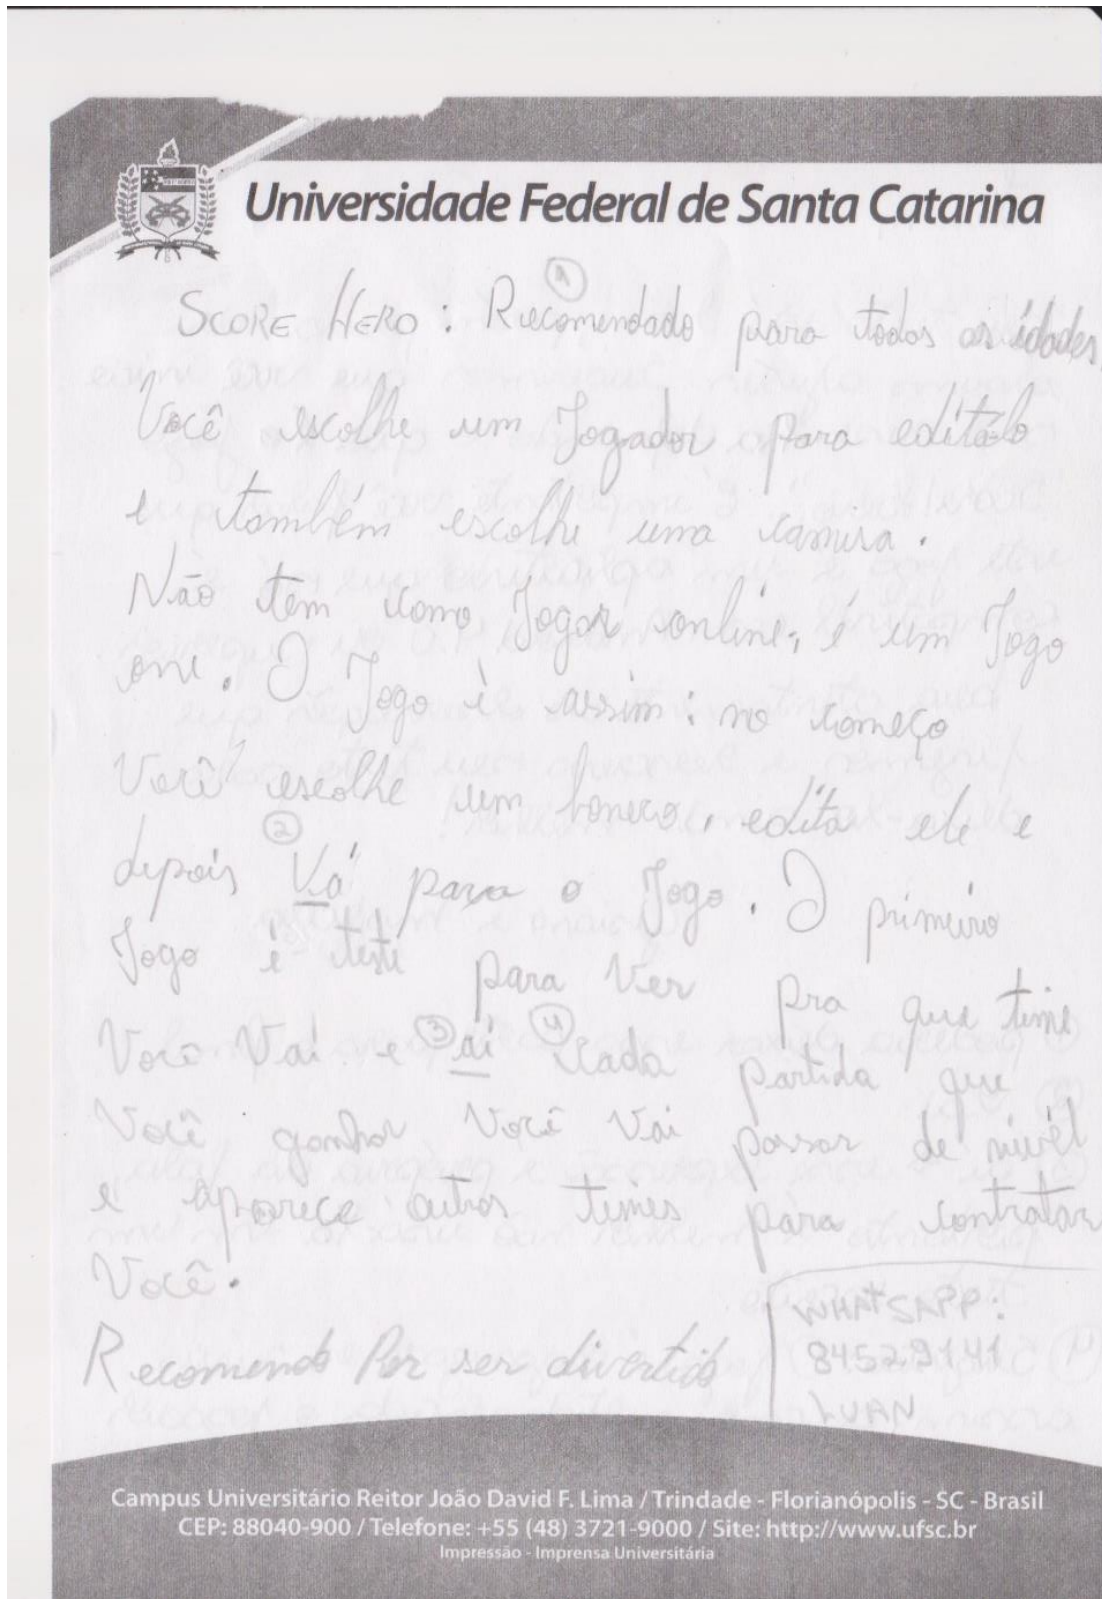 Universidade Federal de Santa Catarina
①
SCORE HERO: Recomendado para todos as idades,
Você escolhe um Jogador para editálo
e também escolhe uma camisa.
Não tem como Jogar online, é um Jogo
one. O Jogo é assim: no começo
Você escolhe um boneco, edita ele e
②
depois Vá para o Jogo. O primeiro
Jogo é teste para Ver pra que time
Você Vai e ③ ai ④ cada partida que
Você ganhar Você Vai passar de nivél
e aparece outros times para contratar
Você.
Recomendo Por ser divertido
WHATSAPP:
84529141
LUAN
Campus Universitário Reitor João David F. Lima / Trindade - Florianópolis - SC - Brasil
CEP: 88040-900 / Telefone: +55 (48) 3721-9000 / Site: http://www.ufsc.br
Impressão - Imprensa Universitária